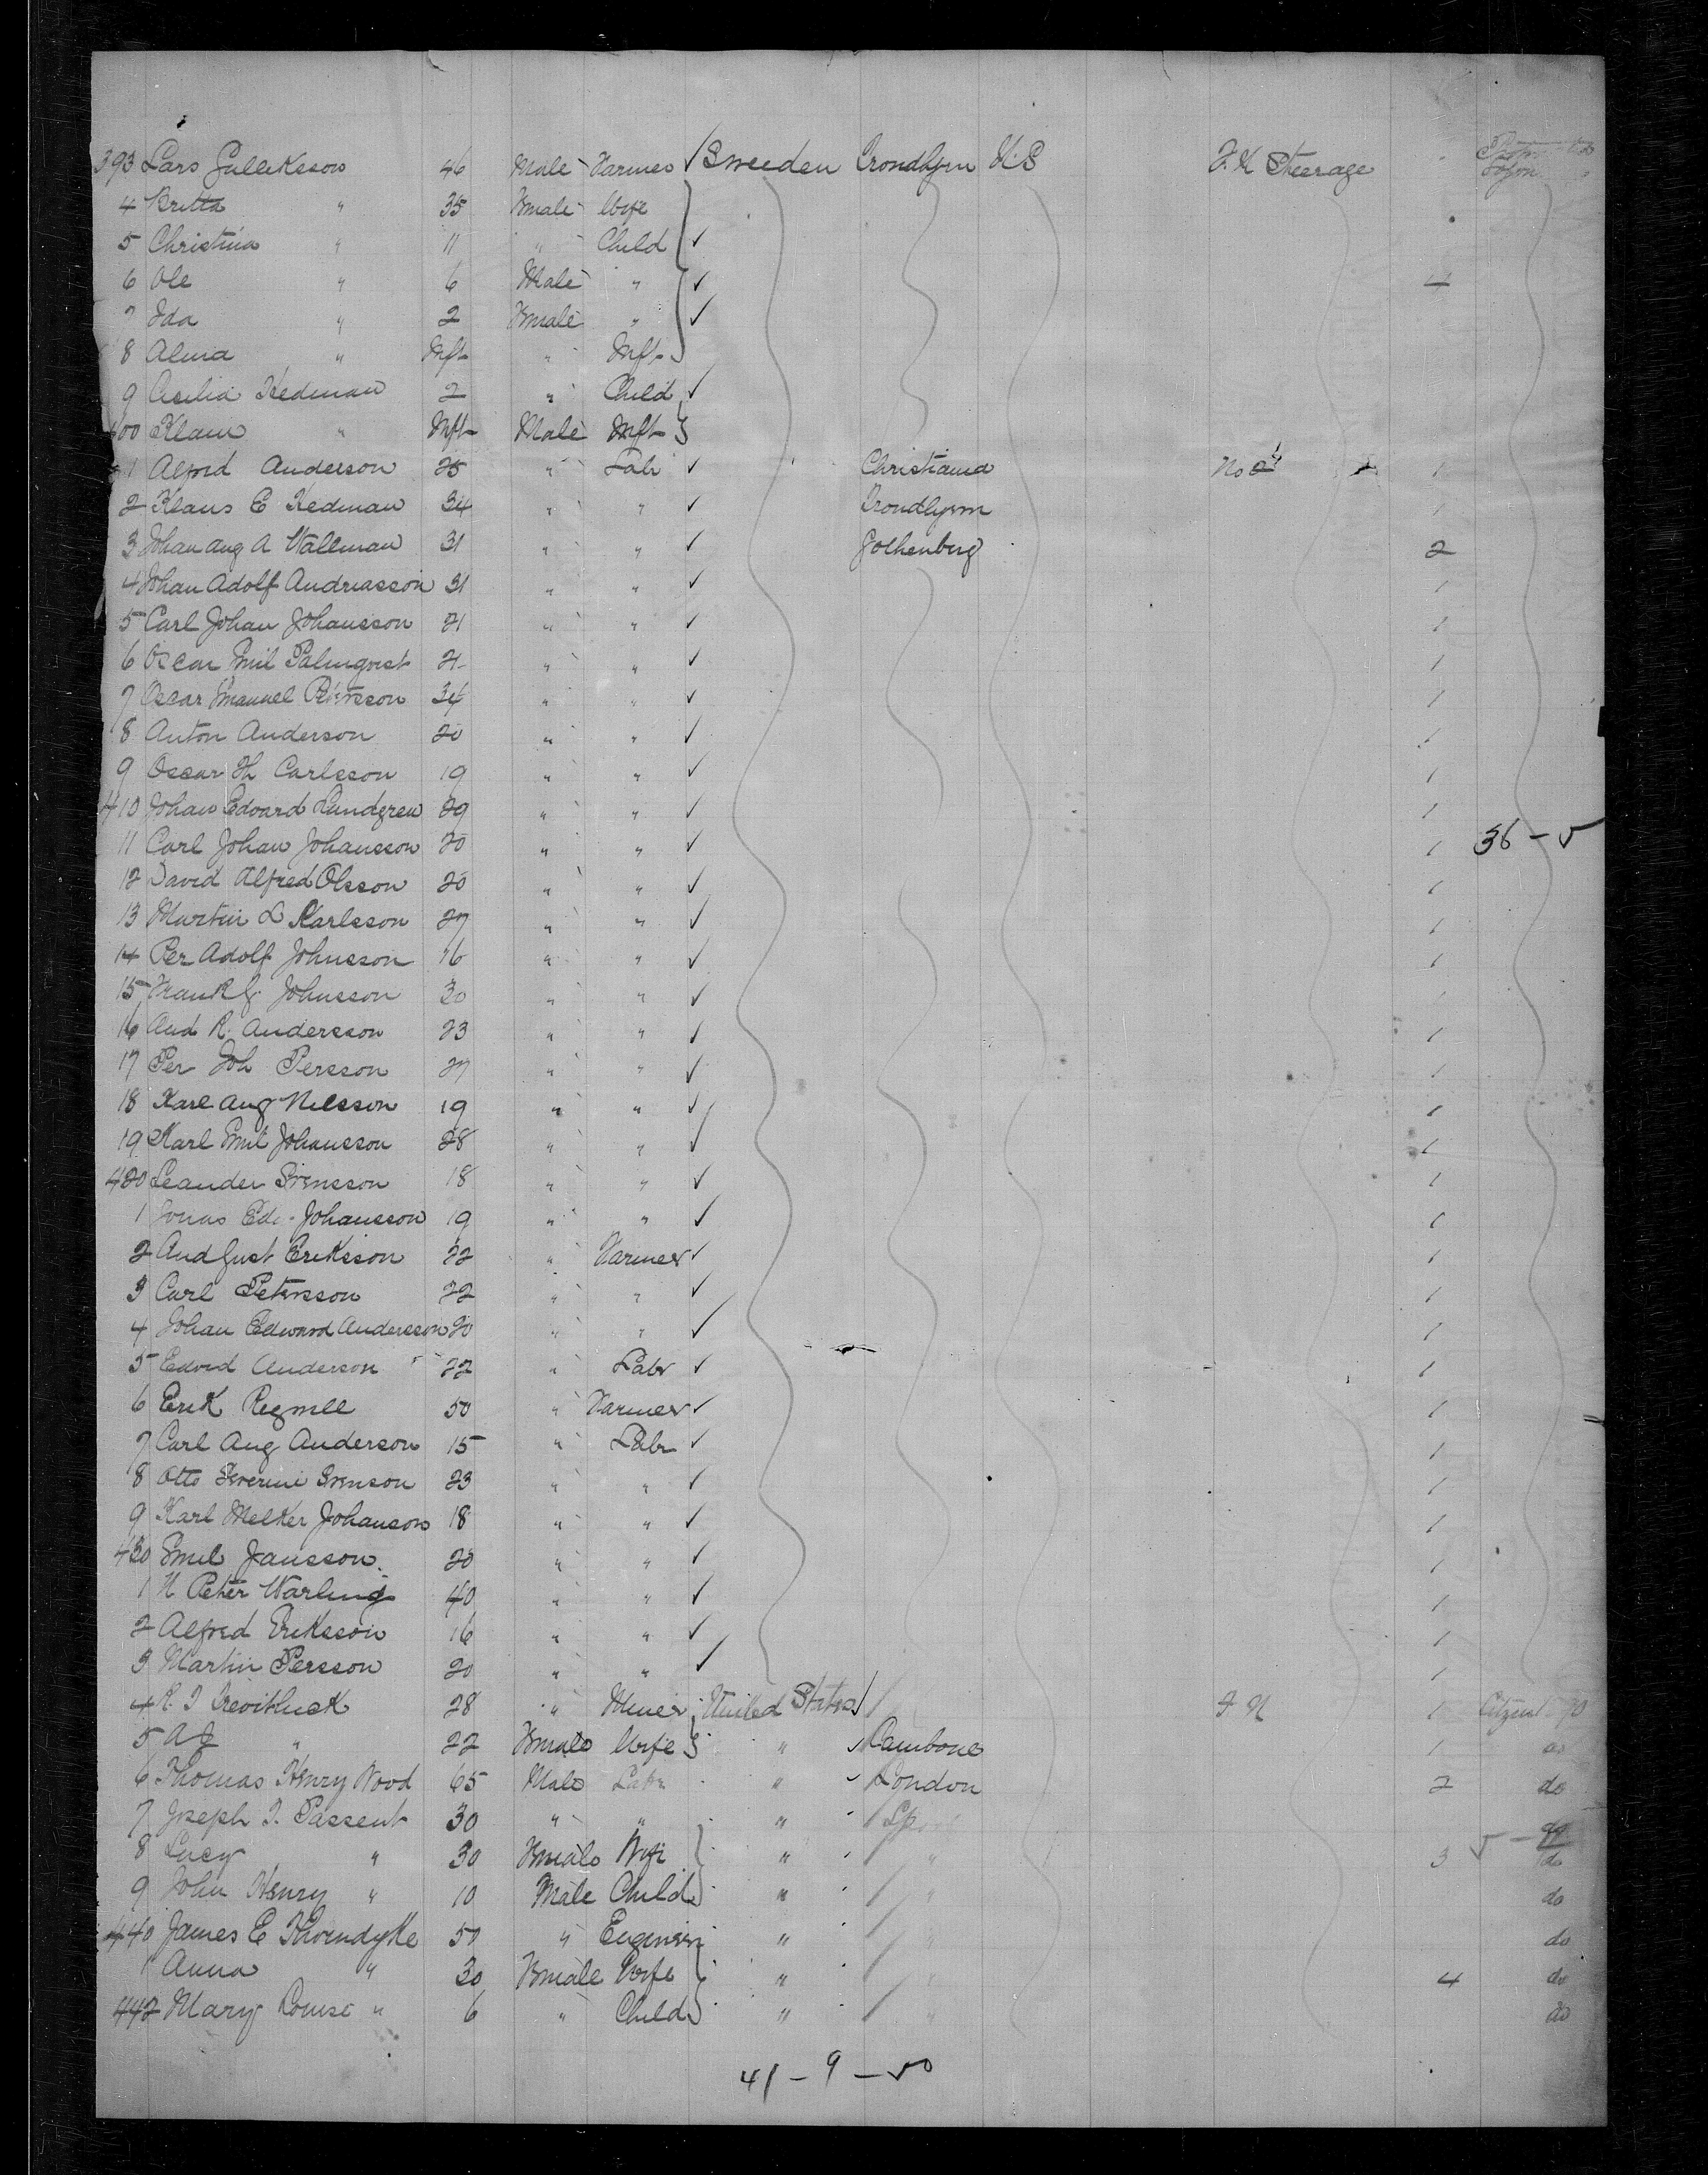 393 Lars Gulleksson 46 Male Farmer ✓ Sweeden Trondhjem U.S F.H Steerage
4 Britta " 35 Fmale Wife
5 Christina " 11 " Child ✓
6 Ole " 6 Male " ✓ 4
7 Ida " 2 Fmale " ✓
8 Alma " Inft " Inft
9 Cecilia Hedman 2 " Child ✓
400 Klaus " Inft Male Inft
1 Alfred Anderson 25 " Labr ✓ Christiania No 2 1
2 Klaus E Hedman 34 " " ✓ Trondhjem 1
3 Johan Aug A Wallman 31 " " ✓ Gothenburg 2
4 Johan Adolf Andreasson 31 " " ✓ 1
5 Carl Johan Johansson 21 " " ✓ 1
6 Oscar Emil Palmqvist 21 " " ✓ 1
7 Oscar Emanuel Petersson 34 " " ✓ 1
8 Anton Anderson 20 " " ✓ 1
9 Oscar Th Carlsson 19 " " ✓ 1
410 Johan Edvard Lundgren 29 " " ✓ 1
11 Carl Johan Johansson 20 " " ✓ 1 36 - 5
12 David Alfred Olsson 20 " " ✓ 1
13 Martin L Karlsson 27 " " ✓ 1
14 Per Adolf Johnsson 16 " " ✓ 1
15 Frank G. Johnsson 30 " " ✓ 1
16 And R. Andersson 23 " " ✓ 1
17 Per Joh Persson 27 " " ✓ 1
18 Karl Aug Nilsson 19 " " ✓ 1
19 Karl Emil Johansson 28 " " ✓ 1
420 Leander Svensson 18 " " ✓ 1
1 Jonas Edv. Johansson 19 " " ✓ 1
2 And Gust Eriksson 22 " Farmer ✓ 1
3 Carl Petersson 22 " " ✓ 1
4 Johan Edward Andersson 20 " " ✓ 1
5 Edvard Anderson 22 " Labr ✓ 1
6 Erik Regnell 50 " Farmer ✓ 1
7 Carl Aug Anderson 15 " Labr ✓ 1
8 Otto Severin Svenson 23 " " ✓ 1
9 Karl Melker Johanson 18 " " ✓ 1
430 Emil Jansson 20 " " ✓ 1
1 N Peter Warling 40 " " ✓ 1
2 Alfred Eriksson 16 " " ✓ 1
3 Martin Persson 20 " " ✓ 1
4 R. T Trevithick 28 " Miner United States F H 1 Citizen
5 A J " 22 Fmale Wife " ✓ Cambone 1 do
6 Thomas Henry Wood 65 Male Labr " ✓ London 2 do
7 Joseph T. Passent 30 " " "
8 Lucy " 30 Fmale Wife " " 3 5 - do
9 John Henry " 10 Male Child " " do
440 James E Thorndyke 57 " Enginser " " do
1 Anna " 30 Fmale Wife " " 4 do
442 Mary Louise " 6 " Child " " do
41 - 9 - 50